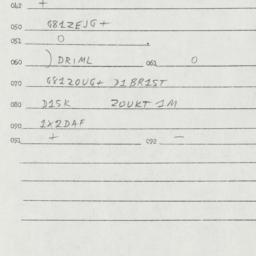 042 +
050 G81ZEJG+
051 O
060 )DRIML 061 O
070 G81ZOUG+ )1BR1ST
080 D15K ZOUKT 1M
090 1X2DAF
091 + 092 —